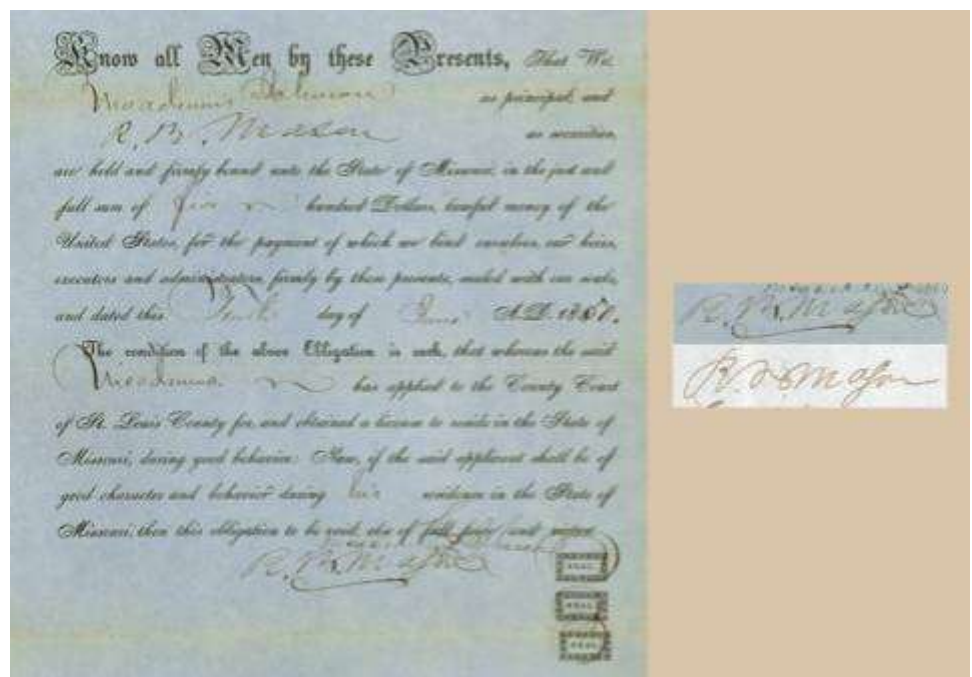 Know all Men by these Presents, That We
as principal, and
R. B. Mason as securities,
are held and firmly bound unto the State of Missouri, in the just and
full sum of five hundred Dollars, lawful money of the
United States, for the payment of which we bind ourselves, our heirs,
executors and administrators, firmly by these presents, sealed with our seals,
and dated this day of A.D. 1850.
The condition of the above Obligation is such, that whereas the said
has applied to the County Court
of St. Louis County for, and obtained a license to reside in the State of
Missouri, during good behavior: Now, if the said applicant shall be of
good character and behavior during his residence in the State of
Missouri, then this obligation to be void, else of full force and
R. B. Mason
SEAL
SEAL
SEAL
R. B. Mason
R. B. Mason